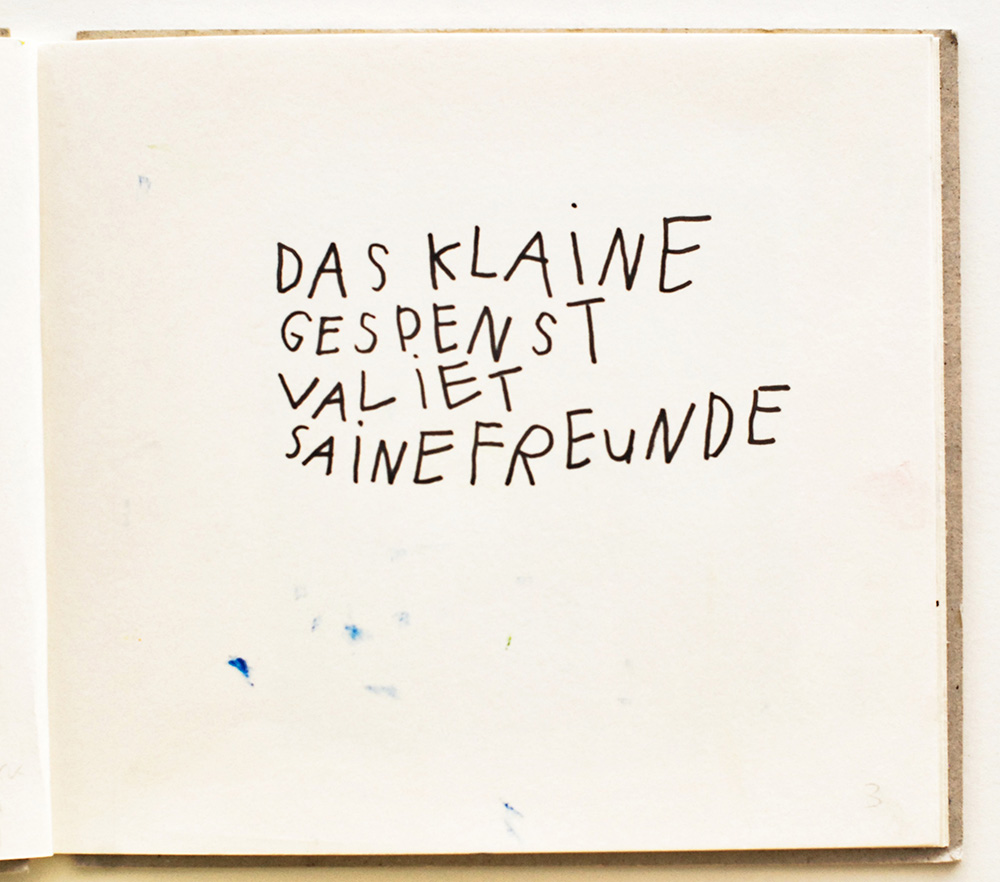 DAS KLAiNE
GESPENST
VALiET
SAiNE FREuNDE
3